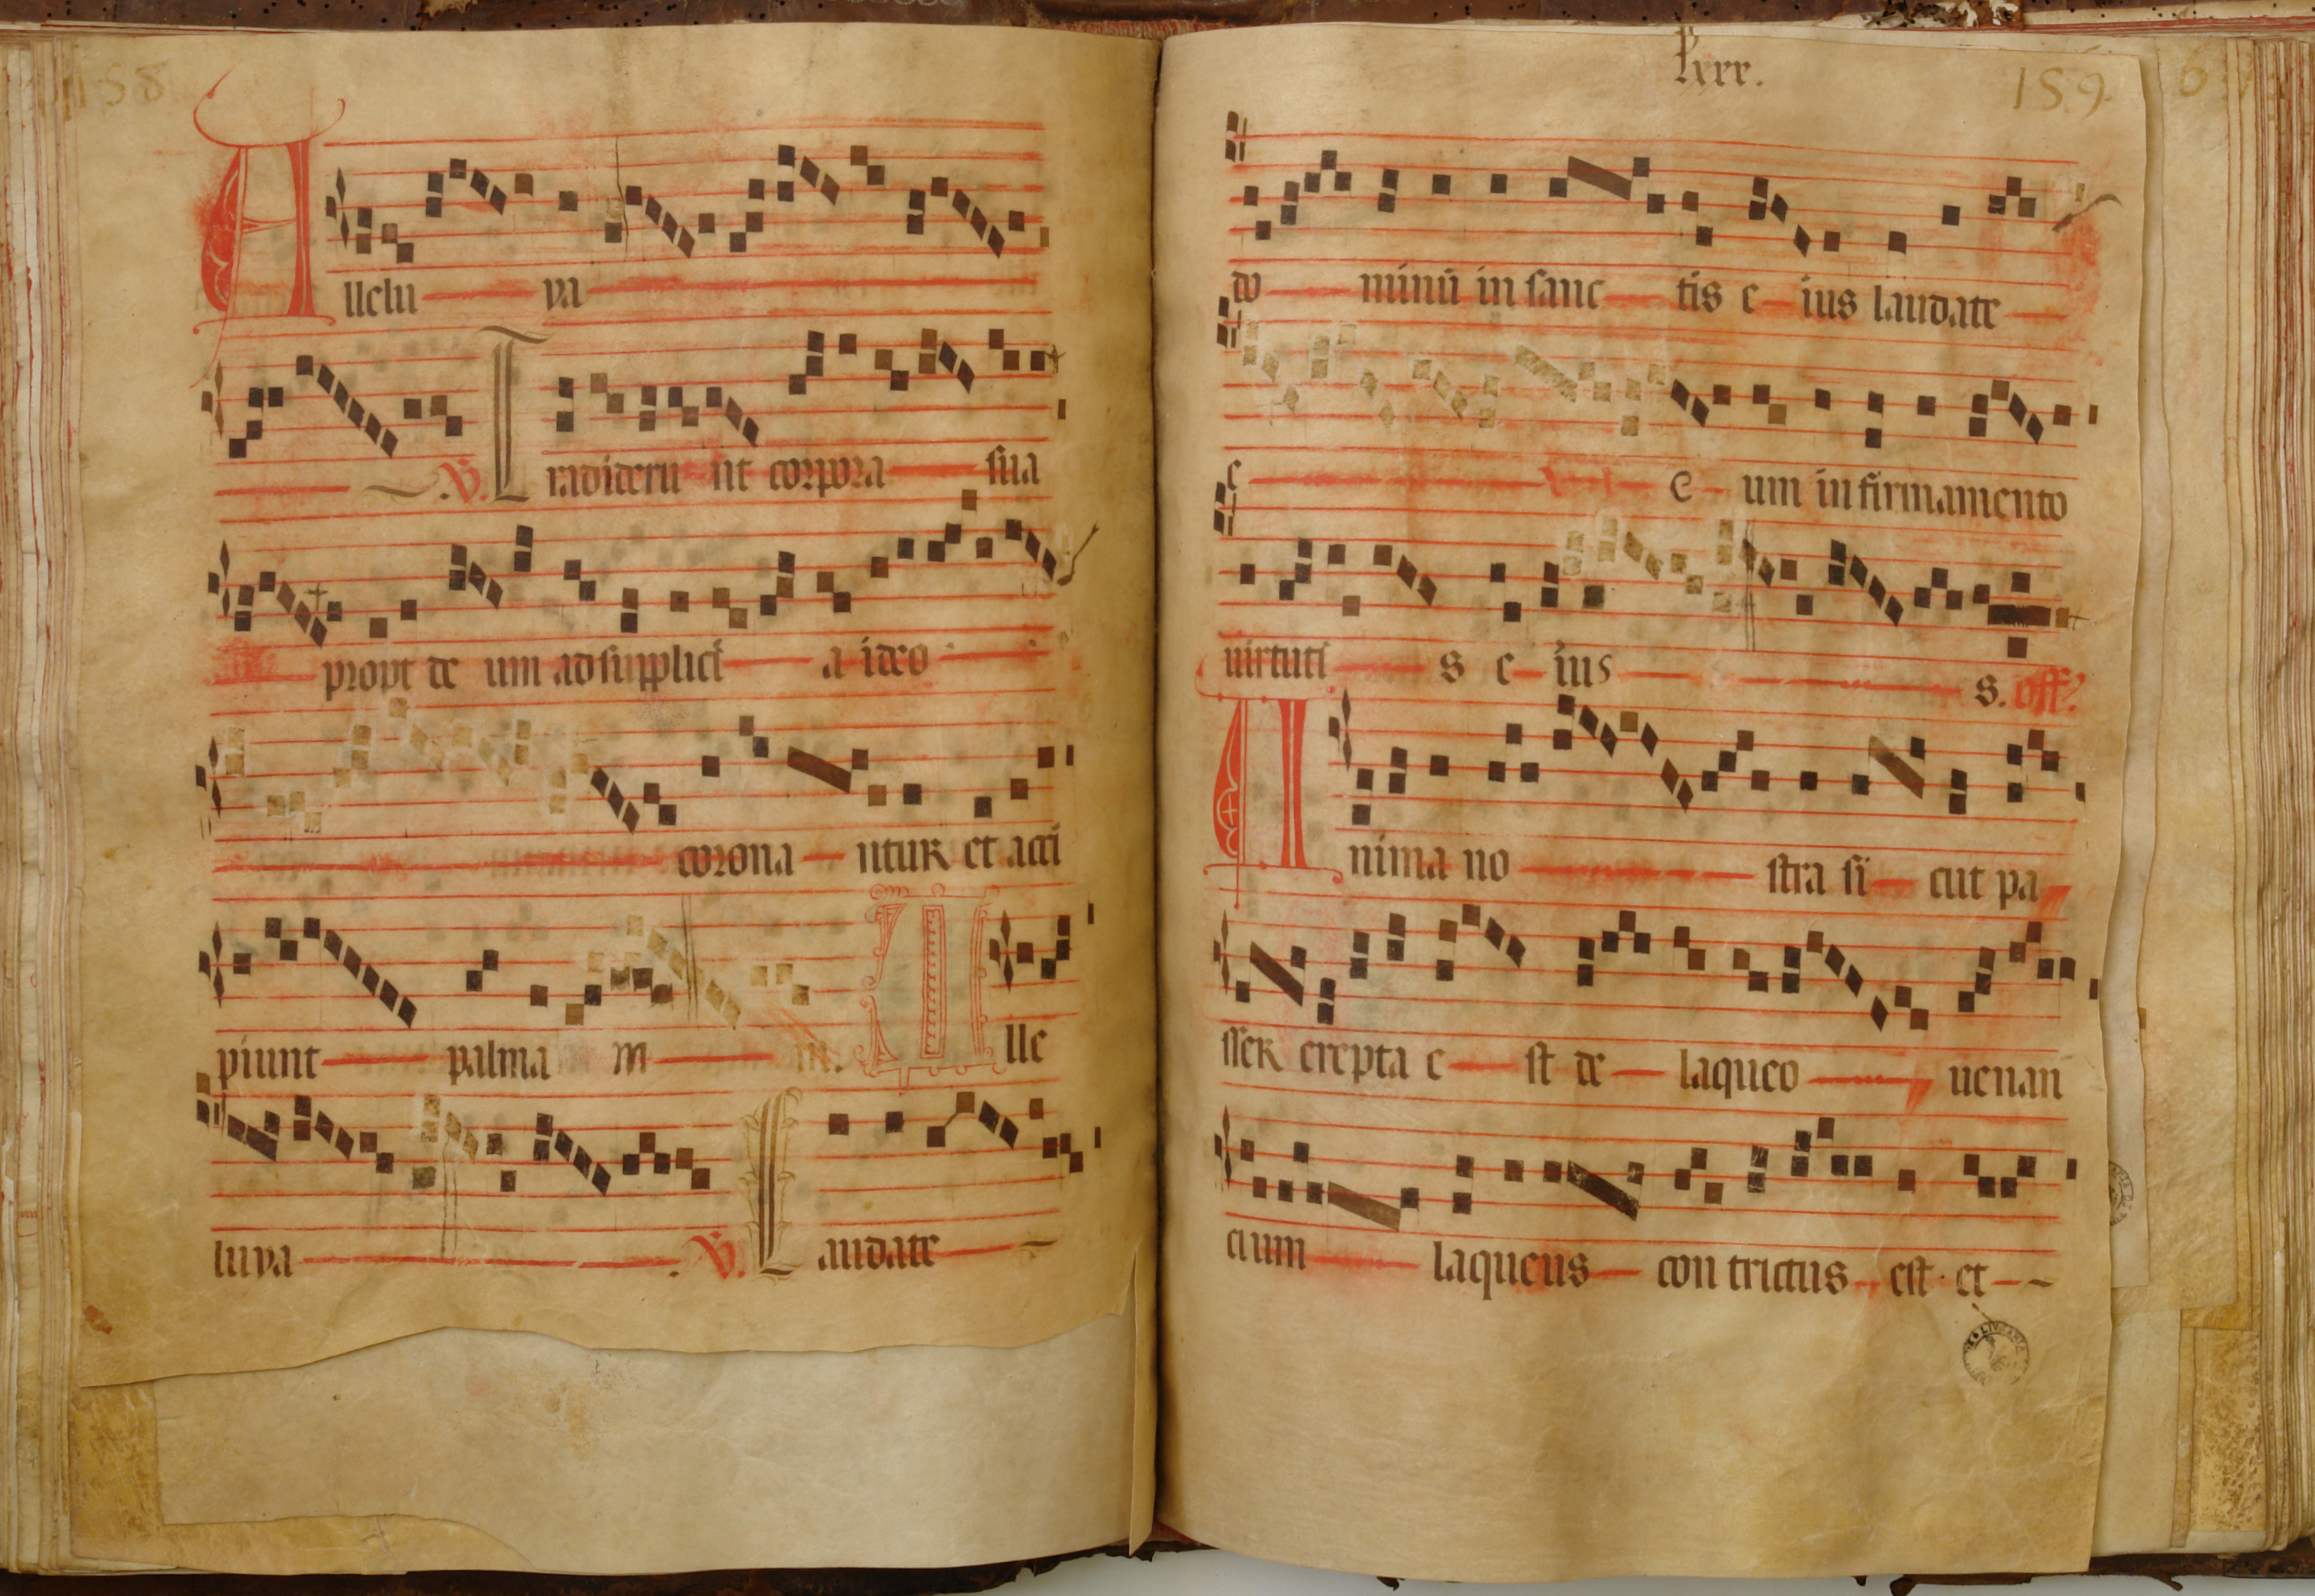 158
Allelu ya
.V. Tradideru nt corpora sua
propt de um ad supplici a ideo
corona ntur et acci
piunt palma m m. Alle
luya . V. Laudate
lxxx.
159
do minū in sanc tis e ius laudate
e e um in firmamento
uirtuti s e ius s. off?
Anima no stra si cut pa
sser erepta e st de laqueo uenan
cium laqueus con trictus est et